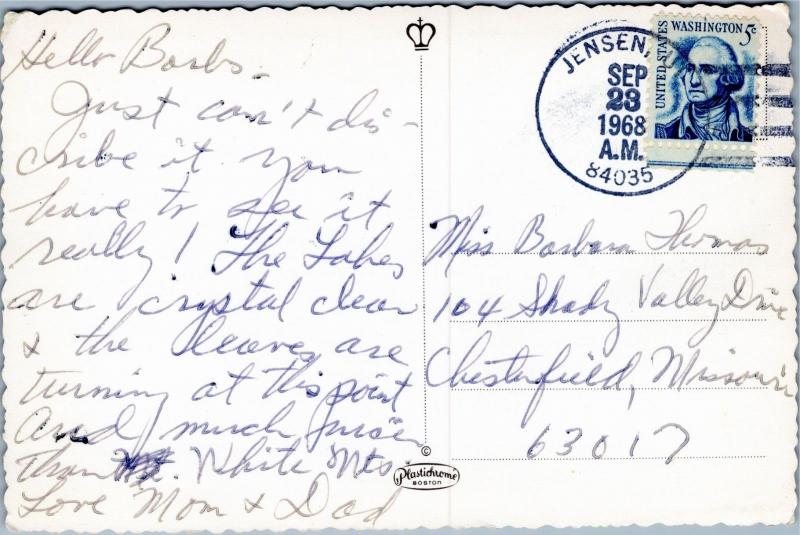 Hello Barbs -
Just can't dis-
cribe it you
have to see it
really! The Lakes
are crystal clear
& the leaves are
turning at this point
And much
than White Mts.
Love Mom & Dad
©
Plastichrome
BOSTON
JENSEN,
SEP
23
1968
A.M.
84035
UNITED STATES
WASHINGTON 5c
Miss Barbara Thomas
104 Shady Valley Drive
Chesterfield, Missouri
63017